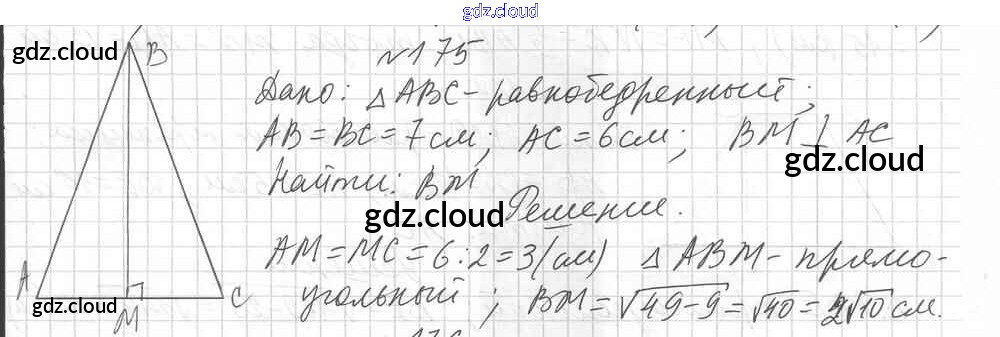 gdz.cloud
№175
gdz.cloud
B
Дано: △ABC - равнобедренный;
AB = BC = 7 см; AC = 6 см; BM ⊥ AC
gdz.cloud
Найти: BM
gdz.cloud
Решение.
AM = MC = 6 : 2 = 3 (см) △ ABM - прямо-
угольный; BM = √49-9 = √40 = 2√10 см.
A
gdz.cloud
C
M